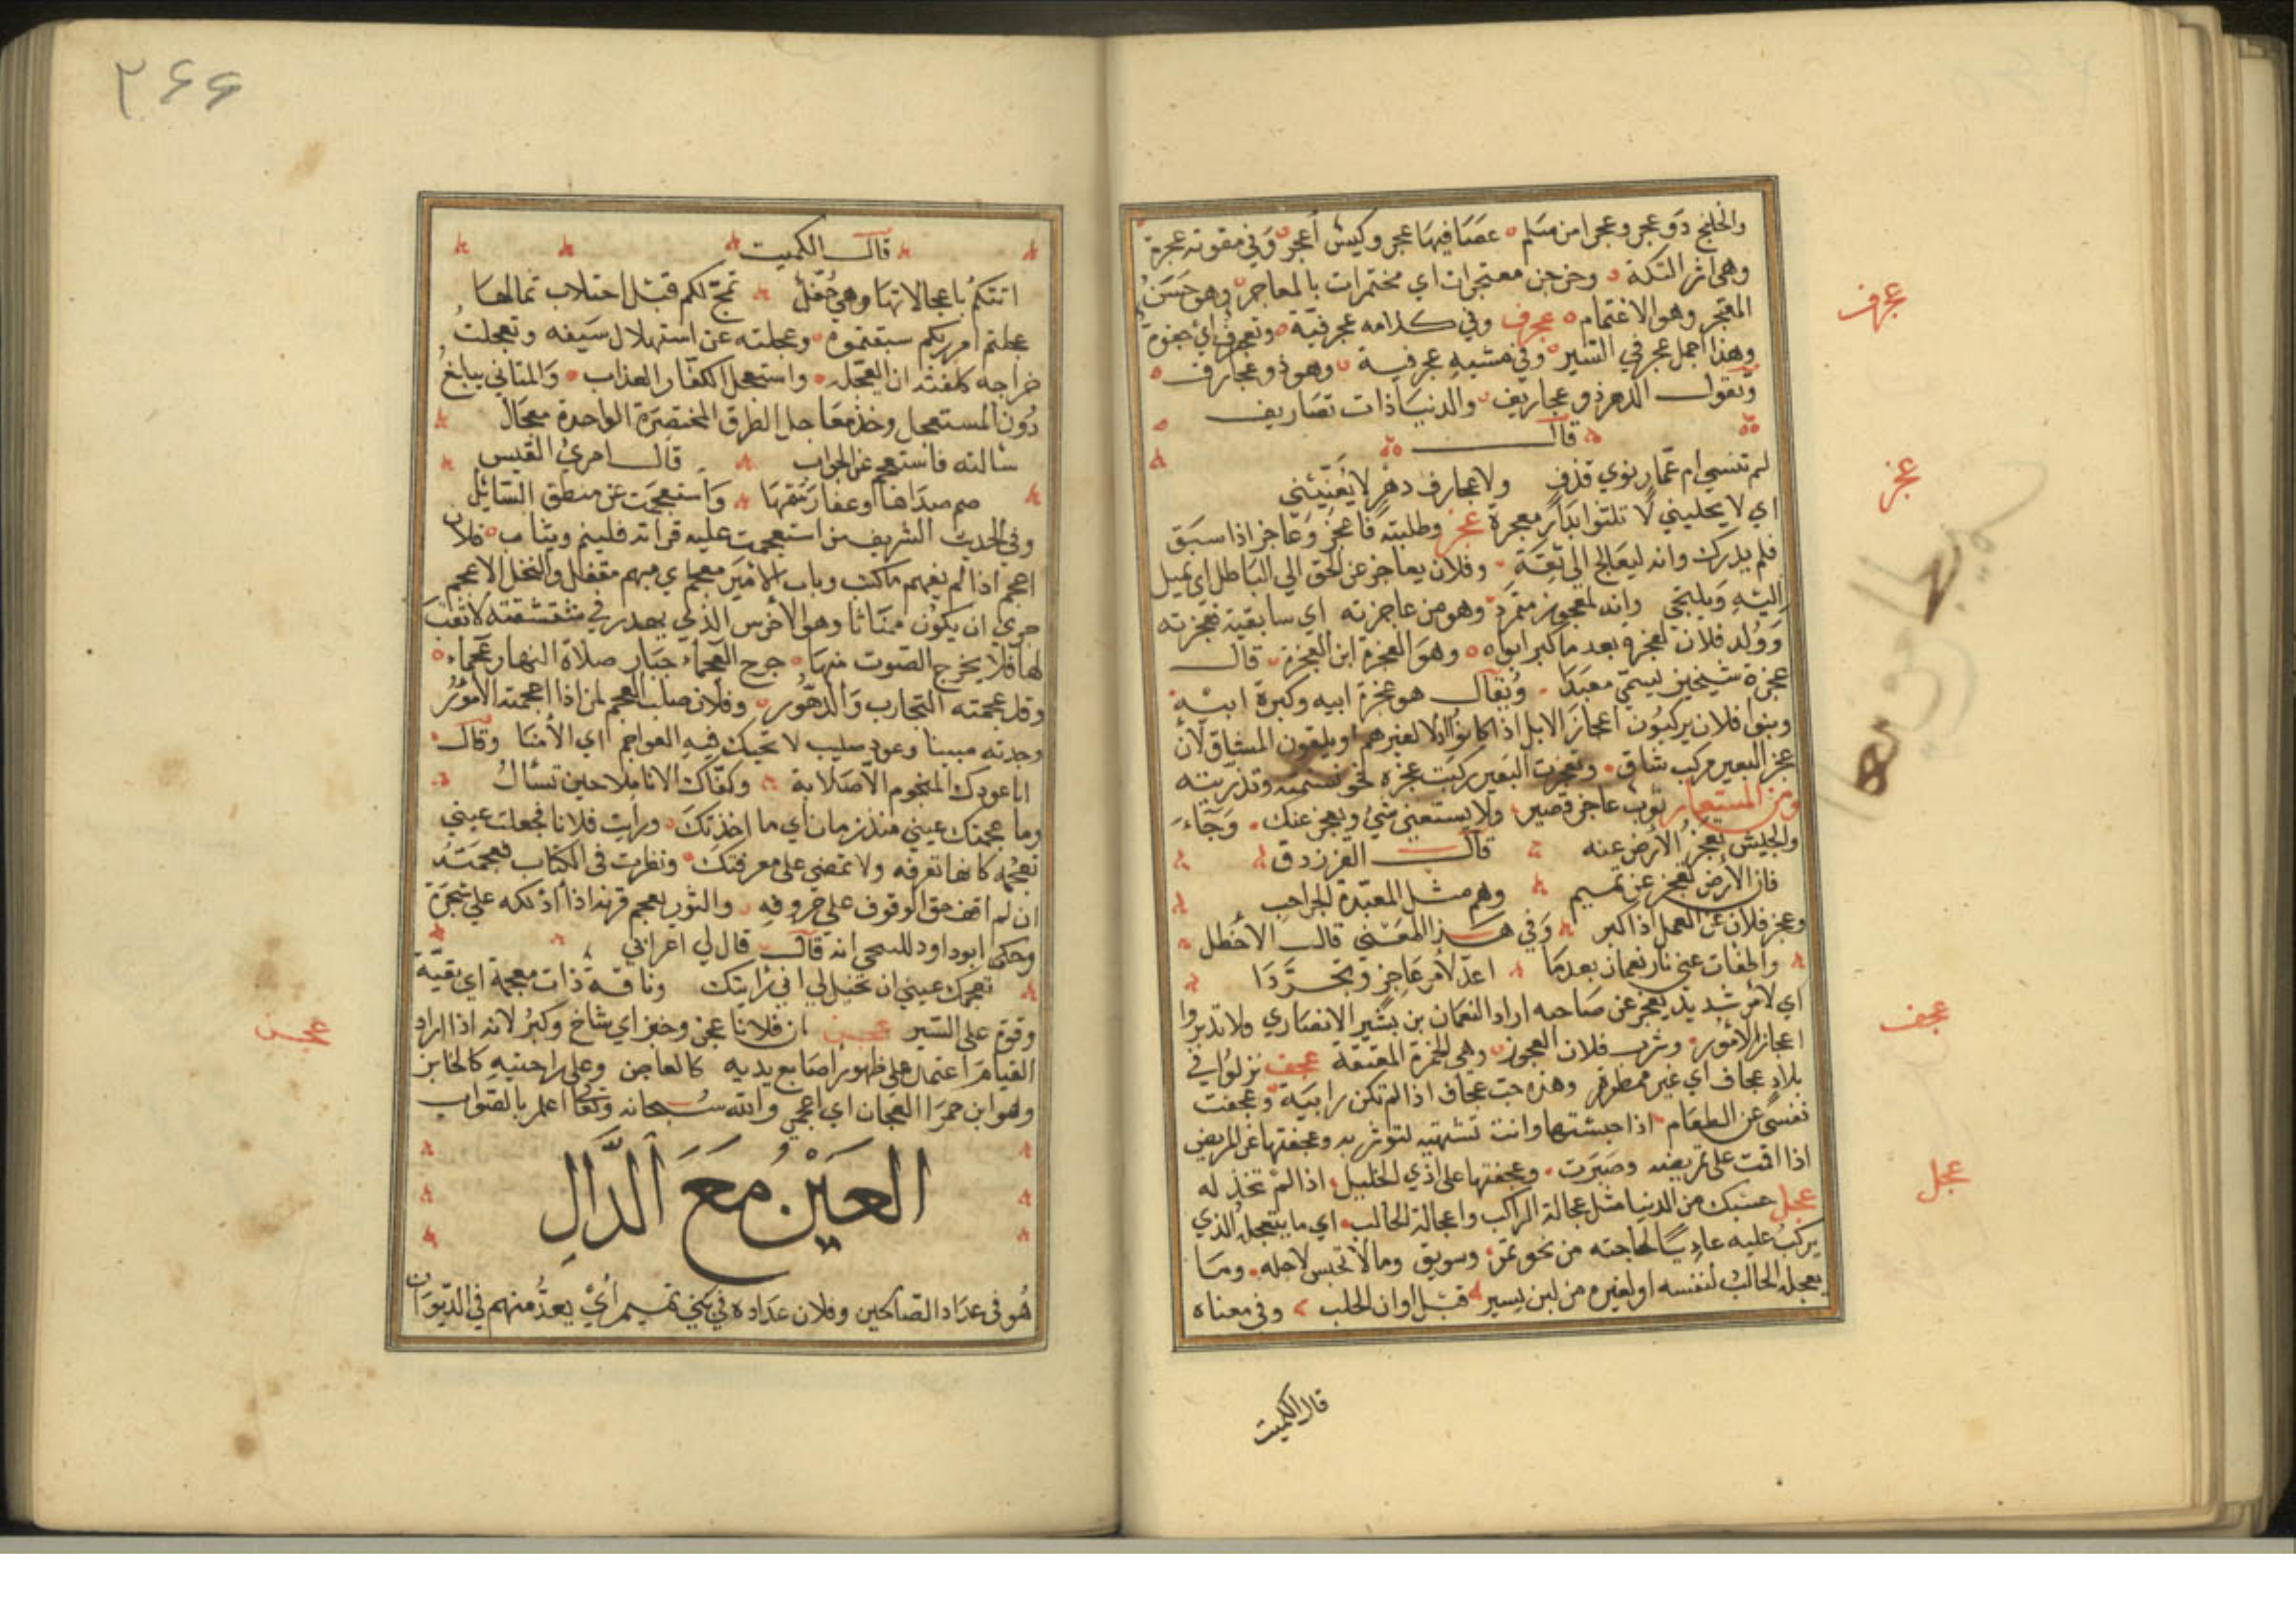 والخلنج ذو عجر وعجرا من سلم عصا فيها عجر وكيس أعجر وفي مقوته عجرة
وهي اثر التكة وخرجن معتجرات اي مختمرات بالمعاجر وهو حسن
المعتجر وهو الاعتمام عجرف وفي كلامه عجرفية وتعجرف اي جفوة
وهذا جمل عجرفي السير وفي مشيه عجرفية وهو ذو عجارف
وتقول الدهر ذو عجاريف والدنيا ذات تصاريف
قال
لم تنسني ام عمار نوي قذف ولا عجارف دهر لا يعنيني
اي لا يخليني لا تلثوا بدار معجزة عجز وطلبته فاعجز وعاجز اذا سبق
فلم يدرك وانه ليعالج الى ثقة وفلان يعاجز عن الحق الي الباطل اي يميل
اليه ويلتجي وانه لمعجوز مثمود وهو من عاجزته اي سابقته فعجزته
وولد فلان لعجزة بعد ما كبر ابواه وهو العجزة ابن العجزة قال
عجزة شيخين يسمي معبدا ويقال هو عجزة ابيه وكبرة ابيه
وبنوا فلان يركبون اعجاز الابل اذا كانوا اذلا لغيرهم او يلقون المشاق لان
عجز البعير مركب شاق وتعجزت البعير ركبت عجزه نحو تسنمته وتذريته
ومن المستعار ثوب عاجز قصير ولا يسعني شئ ويعجز عنك وجاء
والجيش تعجز الارض عنه قال الفرزدق
فان الارض تعجز عن تميم وهم مثل المعبدة الجراب
وعجز فلان عن العمل اذا كبر وفي هذا المعنى قال الأخطل
واطفات عني نار نعمان بعدما اعد لامر عاجز وتجردا
اي لامر شديد يعجز عن صاحبه اراد النعمان بن بشير الانصاري ولا تدبروا
اعجاز الامور وشرب فلان العجوز وهي الخمرة المعتقة عجف نزلوا في
بلاد عجاف اي غير ممطورة وهذه حب عجاف اذا لم تكن رابية وعجفت
نفسي عن الطعام اذا حبستها وانت تشتهيه لتوثر به وعجفتها على المريض
اذا اقمت على تمريضه وصبرت وعجفتها على اذي الخليل اذا لم تخذله
عجل حسبك من الدنيا مثل عجالة الراكب واعجالة الحالب اي ما يتعجله الذي
يركب عليه عاديا لحاجته من نحو تمر وسويق ومالا تحبس لاجله وما
يعجله الحالب لنفسه او لغيره من لبن يسير قبل اوان الحلب وفي معناه
قال الكميت
عجرف
عجز
عجف
عجل
٣٦٦
قال الكميت
اتتكم باعجالاتها وهي حفل تمج لكم قبل احتلاب ثمالها
عجلتم امر ربكم سبقتموه وعجلته عن استهلال سيفه وتعجلت
خراجه كلفته ان العجله واستعجل الكفار العذاب والمتاني يبالغ
دون المستعجل وخذ معاجل الطرق المختصرة الواحدة معجال
سالته فاستعجم عن الجواب قال امرئ القيس
صم صداها وعفا رسمها واستعجمت عن منطق السائل
وفي الحديث الشريف من استعجمت عليه قراته فلينم وبتاب فلان
اعجم اذا لم يفهم ما كتب وباب الامير معجم اي مبهم مقفل والفحل الاعجم
حري ان يكون مئناثا وهو الأخرس الذي يهدر في شقشقته لا ثقب
لها فلا يخرج الصوت منها جرح العجماء جبار صلاة النهار عجماء
وقد عجمته التجارب والدهور وفلان صلب المعجم لمن اذا اعجمته الأمور
وجدته مبينا وعود صليب لا تحيك فيه العواجم اي الأسنا وقال
ابا عودك المعجوم الا صلابة وكفاك الا نايلا حين تسأل
وما عجمتك عيني منذ زمان اي ما اخذتك ورايت فلانا فجعلت عيني
تعجمه كانها تعرفه ولا تمضي على معرفتك ونظرت في الكتاب فعجمته
ان لم اقف حق الوقوف علي حروفه والثور يعجم قرنه اذا ادلكه علي شجرة
وحكى ابو داود للسحي انه قال قال لي اعرابي
تعجمك عيني ان تخيل لي اني رايتك وناقة ذات معجمة اي بقية
وقوة على السير عجن ان فلانا عجن وخبز اي شاخ وكبر لانه اذا اراد
القيام اعتمد علي ظهور اصابع يديه كالعاجن وعلى راحتيه كالخابز
وهو ابن حمرا العجان اي اعجمي والله سبحانه وتعالى اعلم بالصواب
العين مع الدال
هو في عداد الصالحين وفلان عداده في بني تميم اي يعد منهم في الديوان
عجن